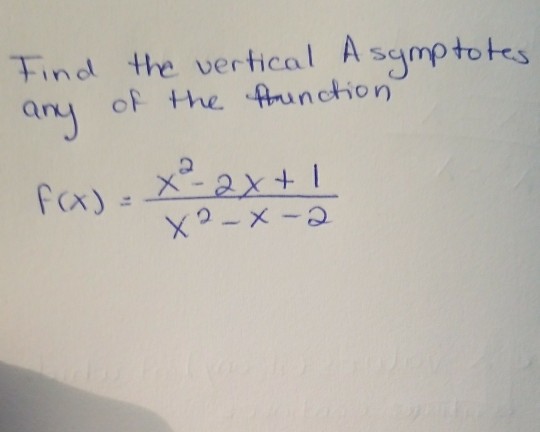 Find the vertical Asymptotes
any of the function
f(x) = x²-2x+1
x²-x-2